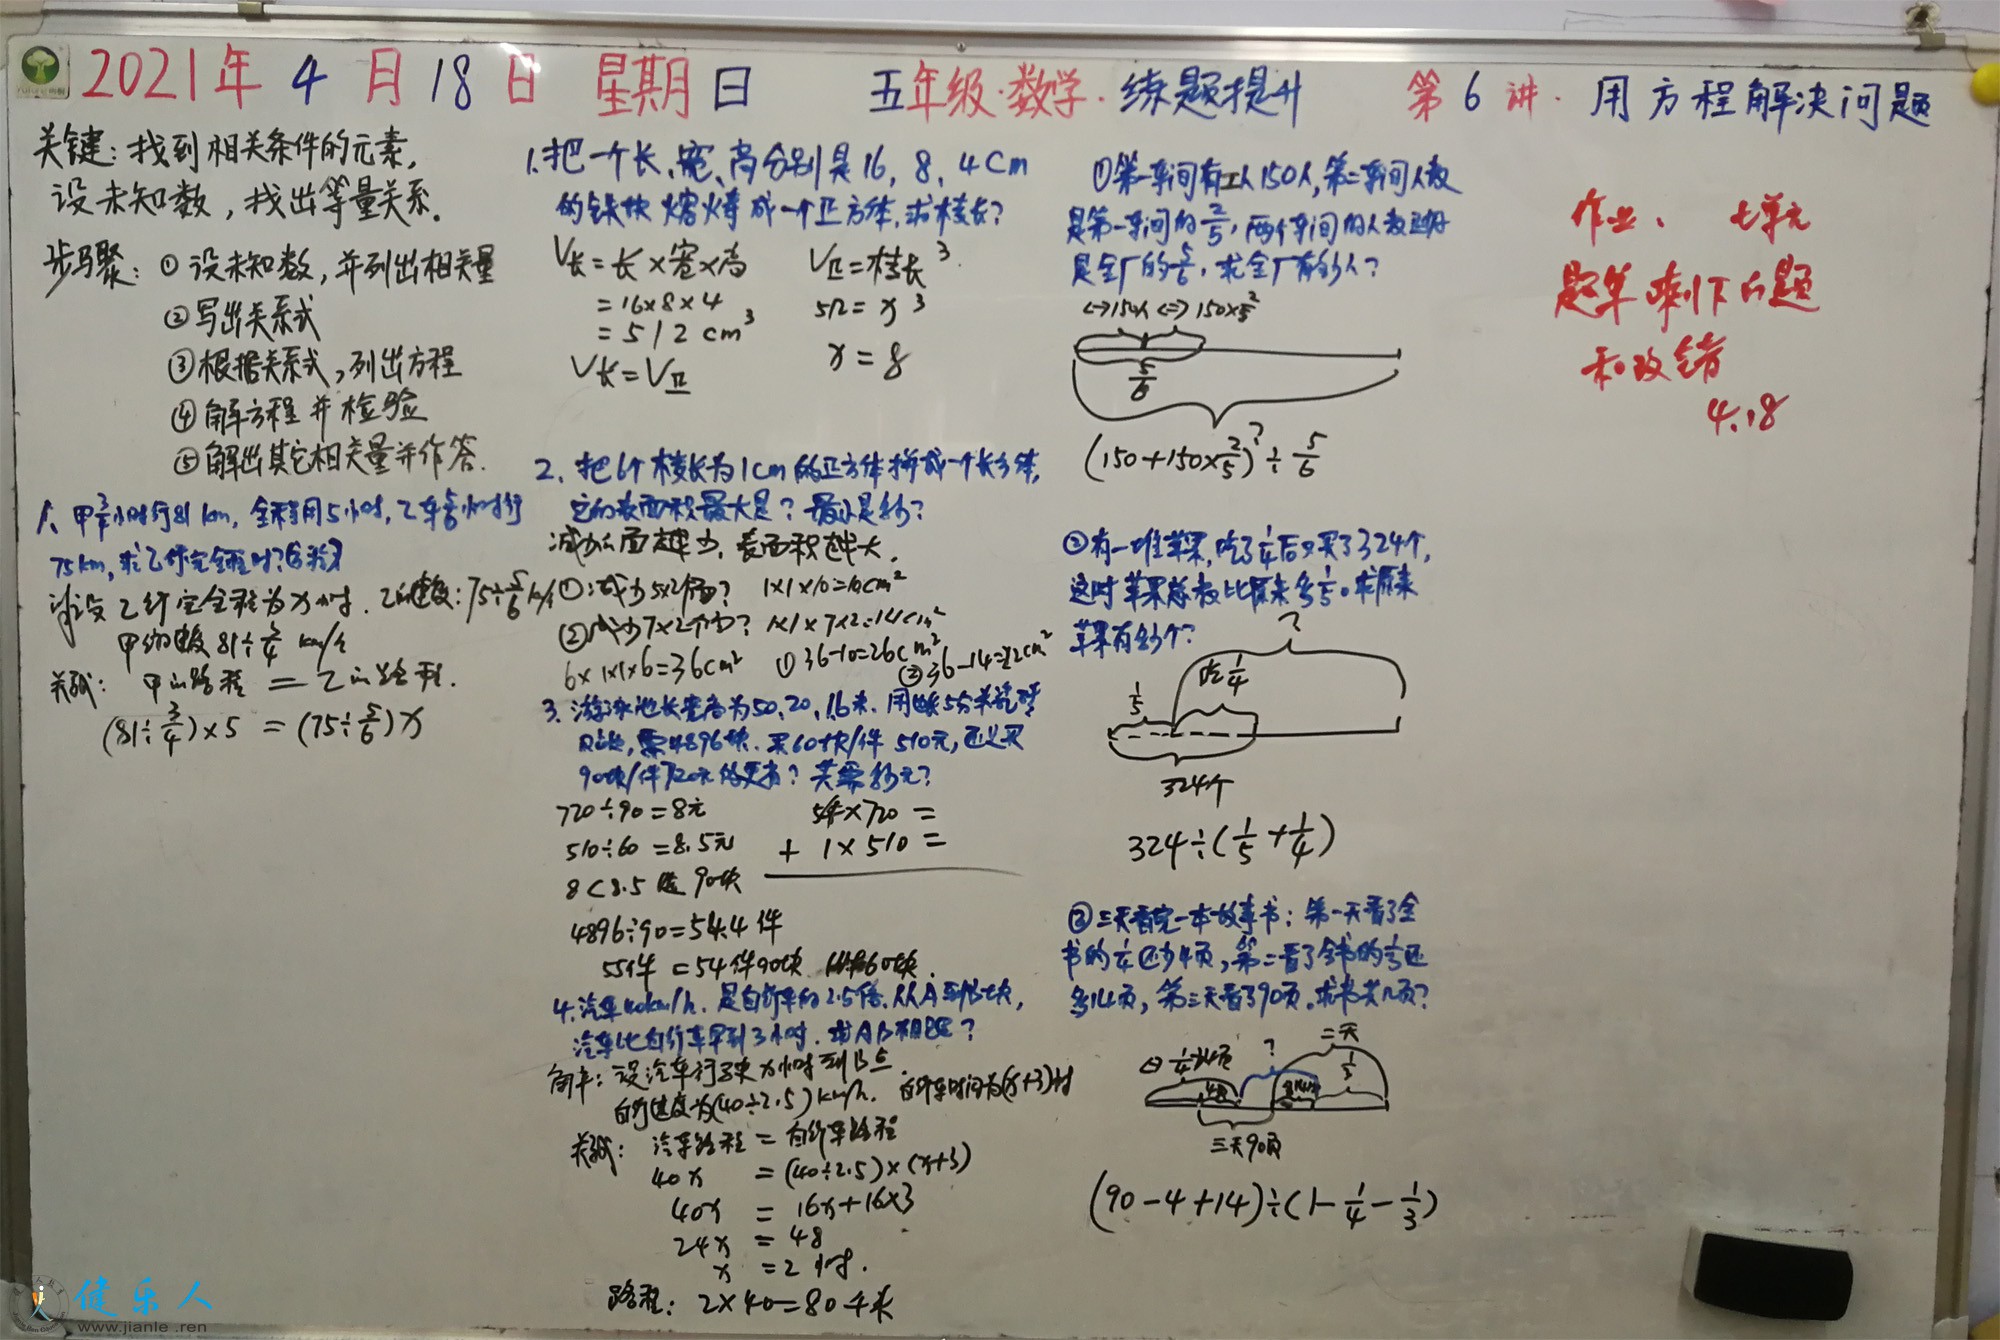 2021年 4月18日 星期日 五年级·数学·练题提升 第6讲·用方程解决问题
关键:找到相关条件的元素,
设未知数,找出等量关系.
步骤:①设未知数,并列出相关量
②写出关系式
③根据关系式,列出方程
④解方程并检验
⑤解出其它相关量并作答.
1、甲3/4小时行81km,全程用5小时,乙车5/6小时行
75km,求乙行完全程时?
设乙行完全程为x小时.乙的速度:75÷5/6 km/h
甲的速度81÷3/4 km/h
关系式:甲的路程=乙的路程.
(81÷3/4)×5=(75÷5/6)x
1.把一个长、宽、高分别是16,8,4Cm
的铁块熔铸成一个正方体,求棱长?
V长=长×宽×高 V正=棱长³.
=16×8×4 512=x³
=512cm³ x=8
V长=V正
2.把6个棱长为1cm的正方体拼成一个长方体,
它的表面积最大是?最小是多少?
减少的面越少,表面积越大.
①减少5×2个面? 1×1×10=10cm²
②减少7×2个面? 1×1×7×2=14cm²
6×1×1×6=36cm² ①36-10=26cm² ②36-14=22cm²
3.游泳池长宽高为50,20,1.6米.用
需4896块.买60块/件 510元,还是买
90块/件720元的更省?共需多少元?
720÷90=8元 54×720=
510÷60=8.5元 + 1×510=
8<8.5 选90块
4896÷90=54.4件
55件=54件90块 1件60块.
4.汽车40km/h.是自行车的2.5倍.从A到B地,
汽车比自行车早到3小时.求AB相距?
解:设汽车行了x小时到B点.
自行速度为(40÷2.5)km/h.自行车时间为(x+3)时
关系式:汽车路程=自行车路程
40x=(40÷2.5)×(x+3)
40x=16x+16×3
24x=48
x=2小时.
路程:2×40=80千米
①第一车间有工人150人,第二车间人数
是第一车间的2/5,两个车间的人数
是全厂的5/6,求全厂有多少人?
150人 150×2/5
5/6
?
(150+150×2/5)÷5/6
②有一堆苹果,吃了1/4后又买了324个,
这时苹果总数比原来多1/5。求原来
苹果有多少个?
?
吃1/4
1/5
324个
324÷(1/5+1/4)
③三天看完一本故事书:第一天看了全
书的1/4还少4页,第二看了全书的1/3还
多14页,第三天看了90页.求书共几页?
二天
? 1/3
三天90页
(90-4+14)÷(1-1/4-1/3)
作业、 七单元
题单剩下的题
和改错
4.18
健乐人
www.jianle.ren